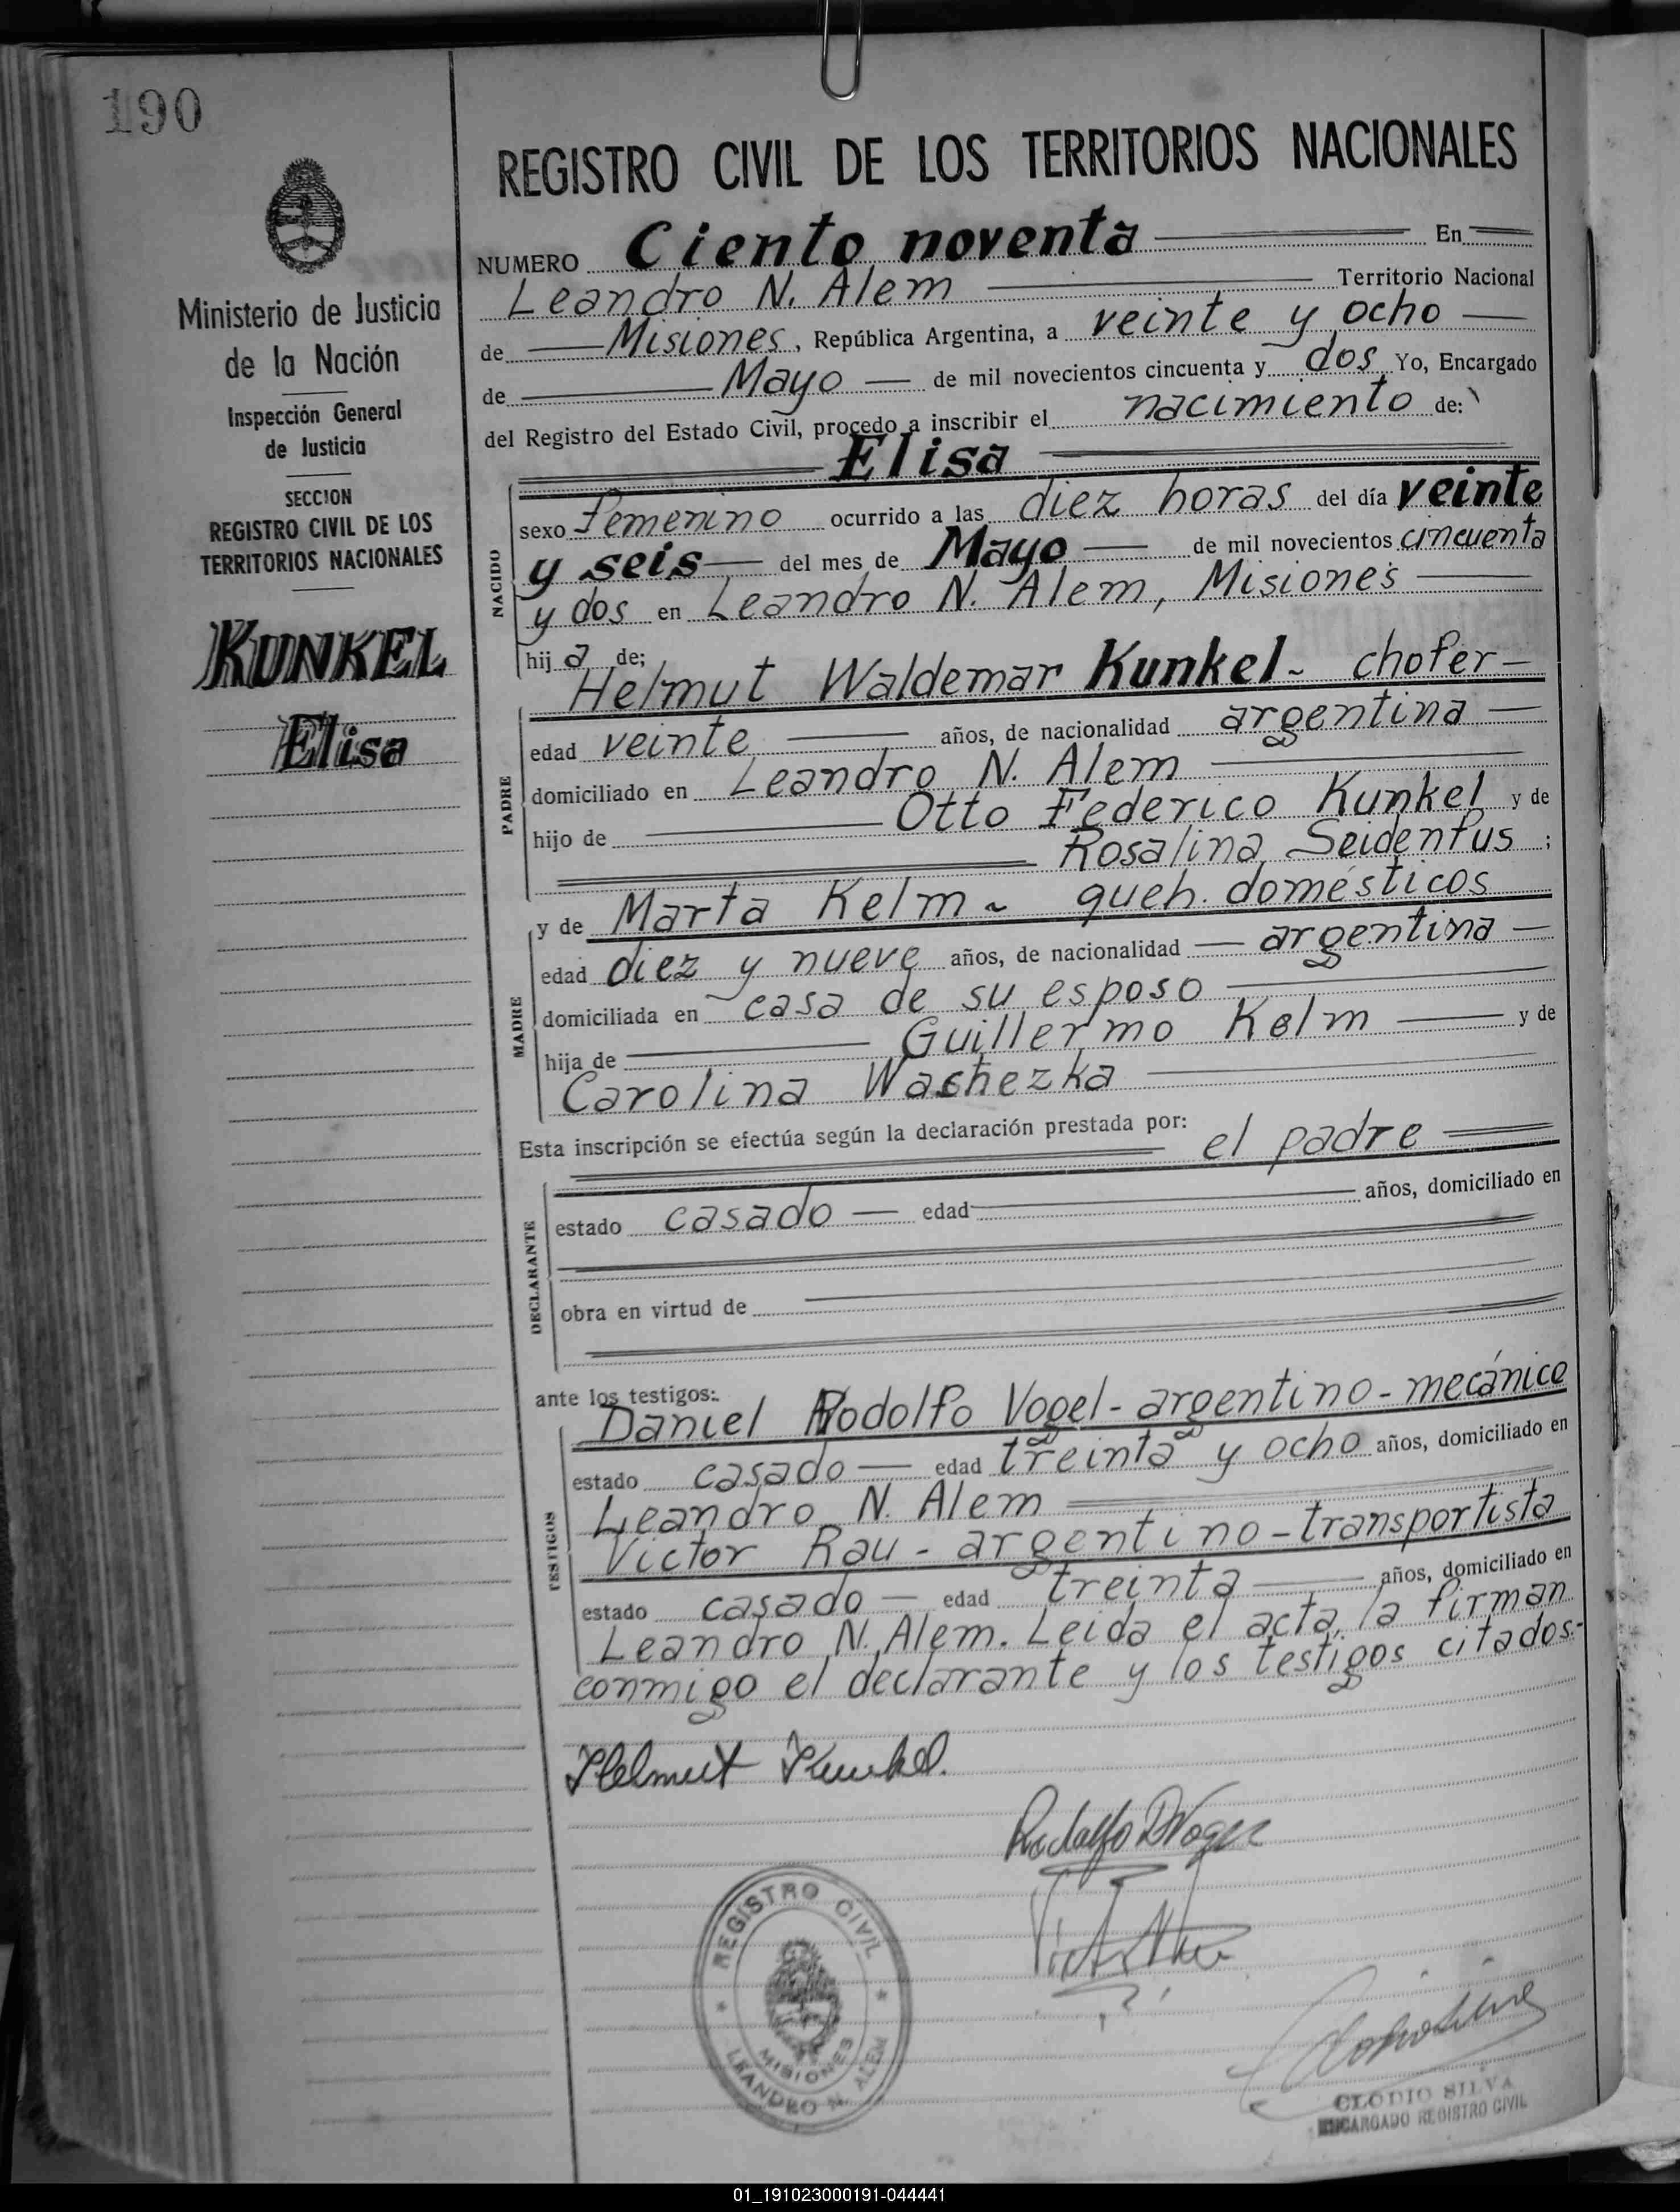 190
Ministerio de Justicia
de la Nación
Inspección General
de Justicia
SECCION
REGISTRO CIVIL DE LOS
TERRITORIOS NACIONALES
KUNKEL
Elisa
REGISTRO CIVIL DE LOS TERRITORIOS NACIONALES
NUMERO Ciento noventa En
Leandro N. Alem Territorio Nacional
de Misiones, República Argentina, a veinte y ocho
de Mayo de mil novecientos cincuenta y dos Yo, Encargado
del Registro del Estado Civil, procedo a inscribir el nacimiento de:
Elisa
NACIDO
sexo Femenino ocurrido a las diez horas del día veinte
y seis del mes de Mayo de mil novecientos cincuenta
y dos en Leandro N. Alem, Misiones
hija de;
PADRE
Helmut Waldemar Kunkel - chofer
edad veinte años, de nacionalidad argentina
domiciliado en Leandro N. Alem
hijo de Otto Federico Kunkel y de
Rosalina Seidenfus;
MADRE
y de Marta Kelm - queh. domésticos
edad diez y nueve años, de nacionalidad argentina
domiciliada en casa de su esposo
hija de Guillermo Kelm y de
Carolina Washezka
Esta inscripción se efectúa según la declaración prestada por:
el padre
DECLARANTE
estado casado edad años, domiciliado en
obra en virtud de
ante los testigos:
TESTIGOS
Daniel Rodolfo Vogel - argentino - mecánico
estado casado edad treinta y ocho años, domiciliado en
Leandro N. Alem
Victor Rau - argentino - transportista
estado casado edad treinta años, domiciliado en
Leandro N. Alem. Leida el acta, la firman
conmigo el declarante y los testigos citados.-
Helmut Kunkel.
Rodolfo D Vogel
REGISTRO CIVIL
MISIONES
LEANDRO N. ALEM
CLODIO SILVA
ENCARGADO REGISTRO CIVIL
01_191023000191-044441